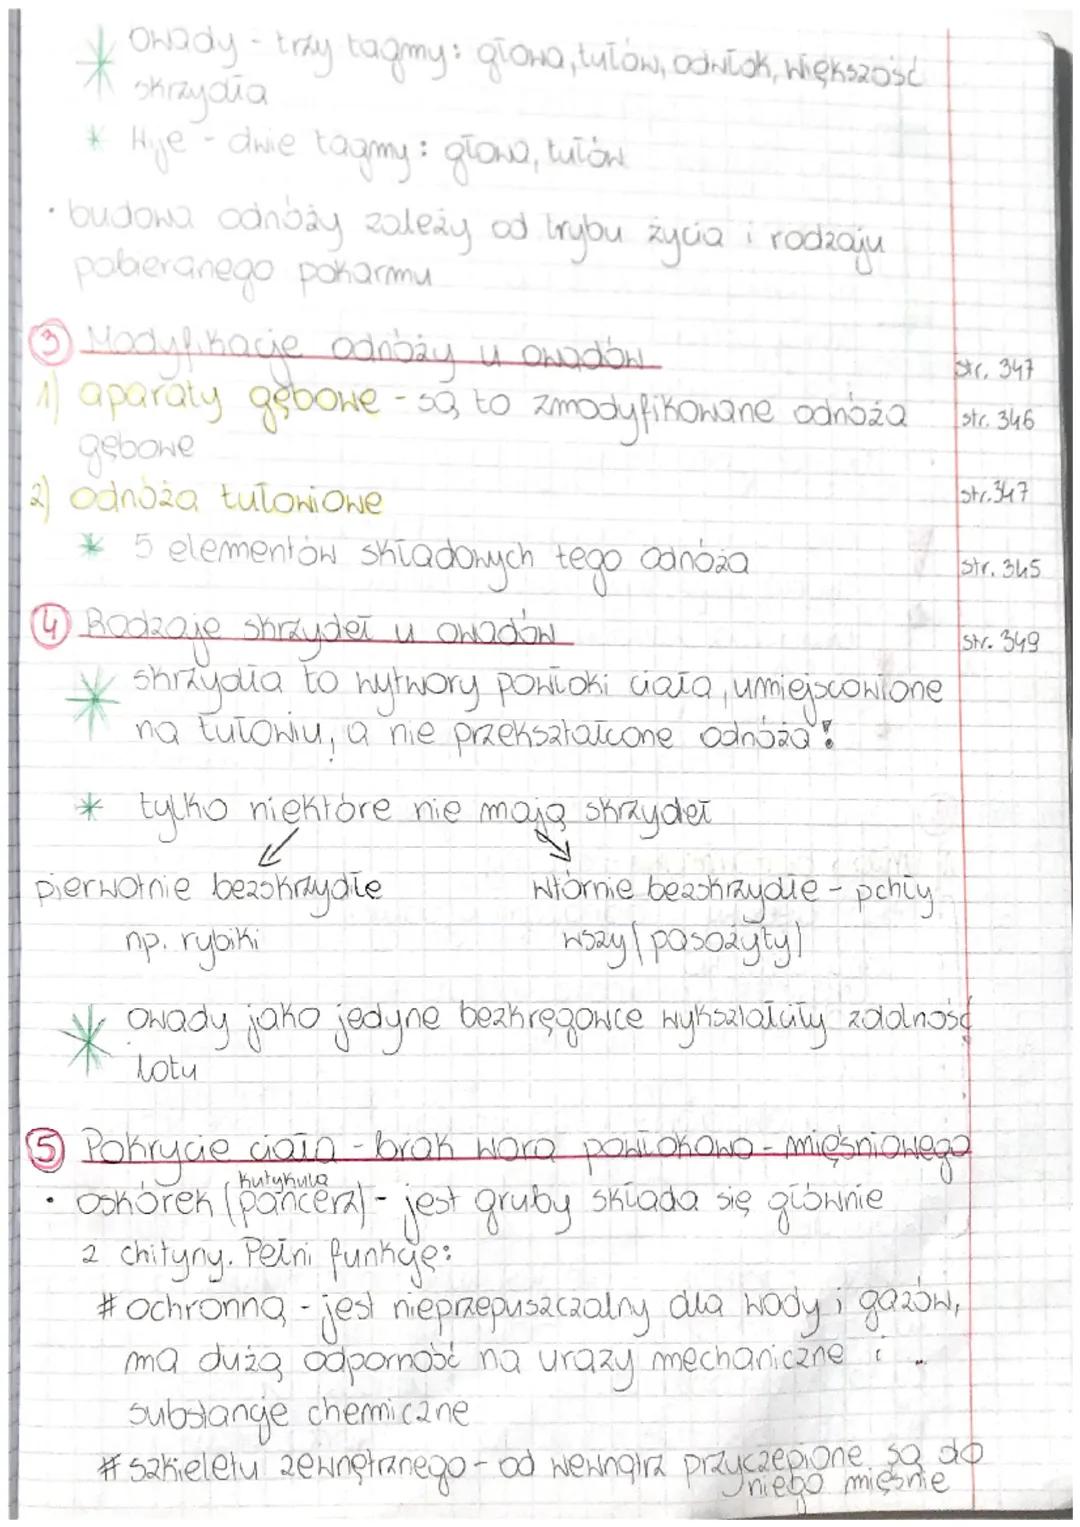 * Owady - trzy tagmy: głowa, tułów, odwłok, większość
skrzydła
* Wije - dwie tagmy: głowa, tułów
• budowa odnóży zależy od trybu życia i rodzaju
pobieranego pokarmu
③ Modyfikacje odnóży u owadów str. 347
1) aparaty gębowe - są to zmodyfikowane odnóża str. 346
gębowe
2) odnóża tułowiowe str. 347
* 5 elementów składowych tego odnóża str. 345
④ Rodzaje skrzydeł u owadów str. 349
* skrzydła to wytwory powłoki ciała, umiejscowione
na tułowiu, a nie przekształcone odnóża!
* tylko niektóre nie mają skrzydeł
pierwotnie bezskrzydłe wtórnie bezskrzydłe - pchły
np. rybiki wszy (pasożyty)
* owady jako jedyne bezkręgowce wykształciły zdolność
lotu
⑤ Pokrycie ciała - brak wora powłokowo - mięśniowego
kutykula
• oskórek (pancerz) - jest gruby składa się głównie
z chityny. Pełni funkcje:
# ochronną - jest nieprzepuszczalny dla wody i gazów,
ma dużą odporność na urazy mechaniczne i
substancje chemiczne
# szkieletu zewnętrznego - od wewnątrz przyczepione są do
niego mięśnie